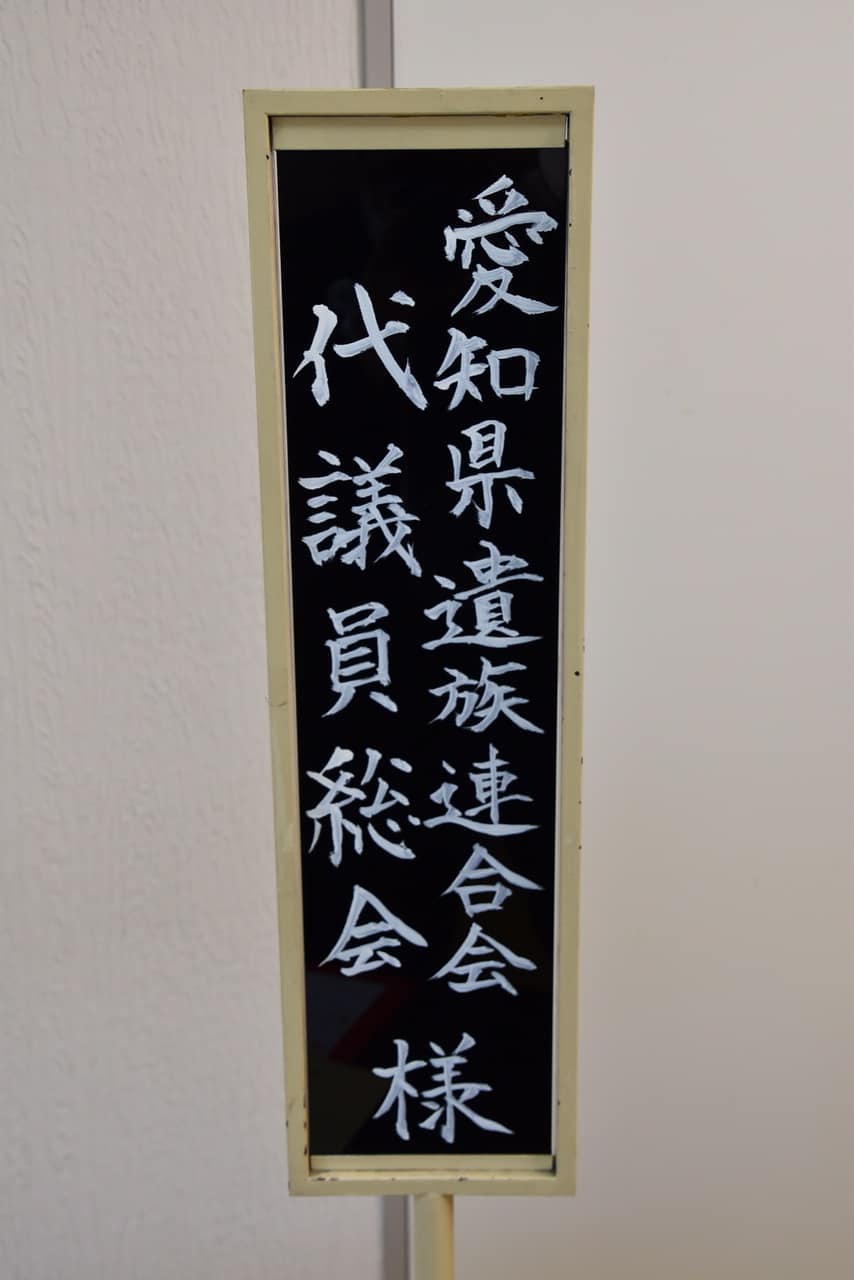 愛知県遺族連合会
代議員総会
様